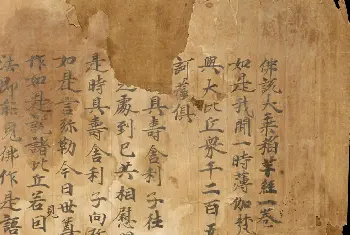 佛說大乘稻芊經一卷
如是我聞一時薄伽梵
與大比丘眾千二百五
訶薩俱
具壽舍利子往
之處到已共相慰
是時具壽舍利子向
如是言弥勒今日世尊
作如是說諸比丘若見因
法即能見佛作是語